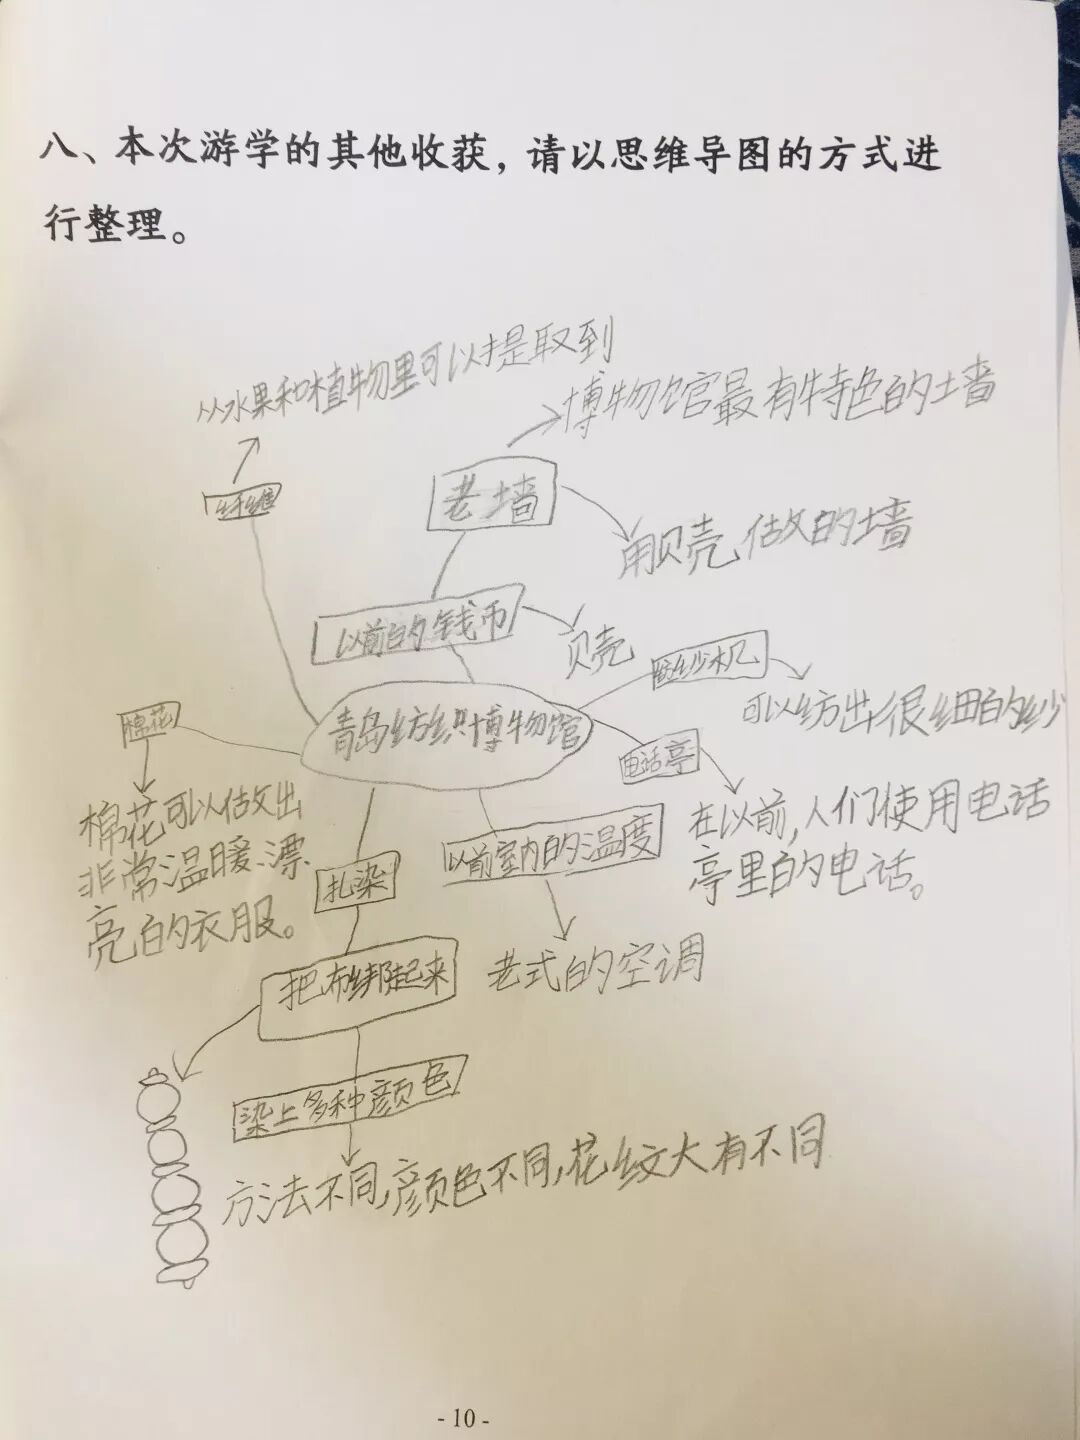 八、本次游学的其他收获，请以思维导图的方式进
行整理。
从水果和植物里可以提取到
纤维
博物馆最有特色的墙
老墙
用贝壳做的墙
以前的钱币
贝壳
纺纱机
可以纺出很细的纱
青岛纺织博物馆
棉花
棉花可以做出
非常温暖漂
亮的衣服。
电话亭
在以前，人们使用电话
亭里的电话。
以前室内的温度
老式的空调
扎染
把布绑起来
染上多种颜色
方法不同，颜色不同，花纹大有不同
- 10 -